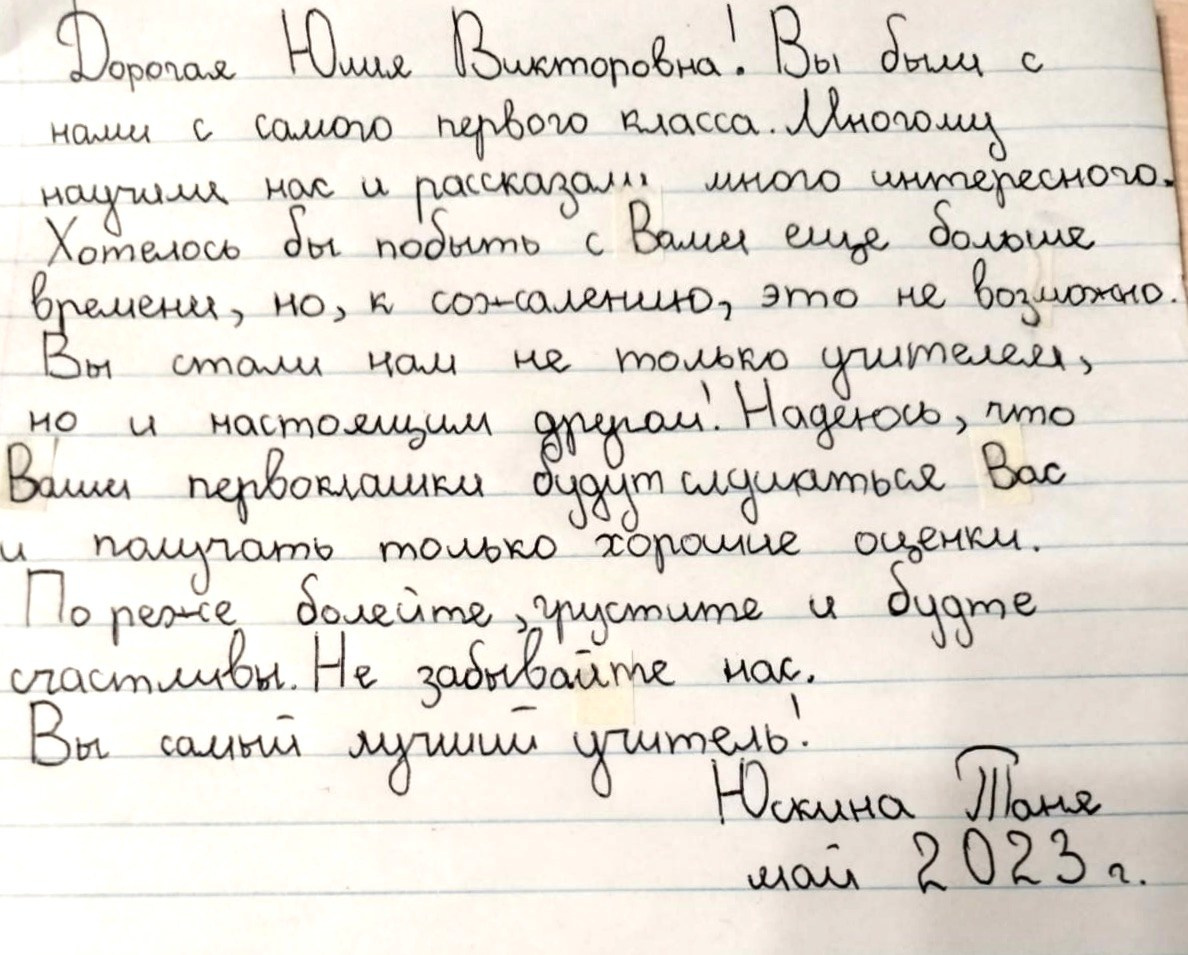 Дорогая Юлия Викторовна! Вы были с
нами с самого первого класса. Многому
научили нас и рассказали много интересного.
Хотелось бы побыть с Вами еще больше
времени, но, к сожалению, это не возможно.
Вы стали нам не только учителем,
но и настоящим другом! Надеюсь, что
Ваши первоклашки будут слушаться Вас
и получать только хорошие оценки.
По реже болейте, грустите и будте
счастливы. Не забывайте нас.
Вы самый лучший учитель!
Юскина Таня
май 2023 г.